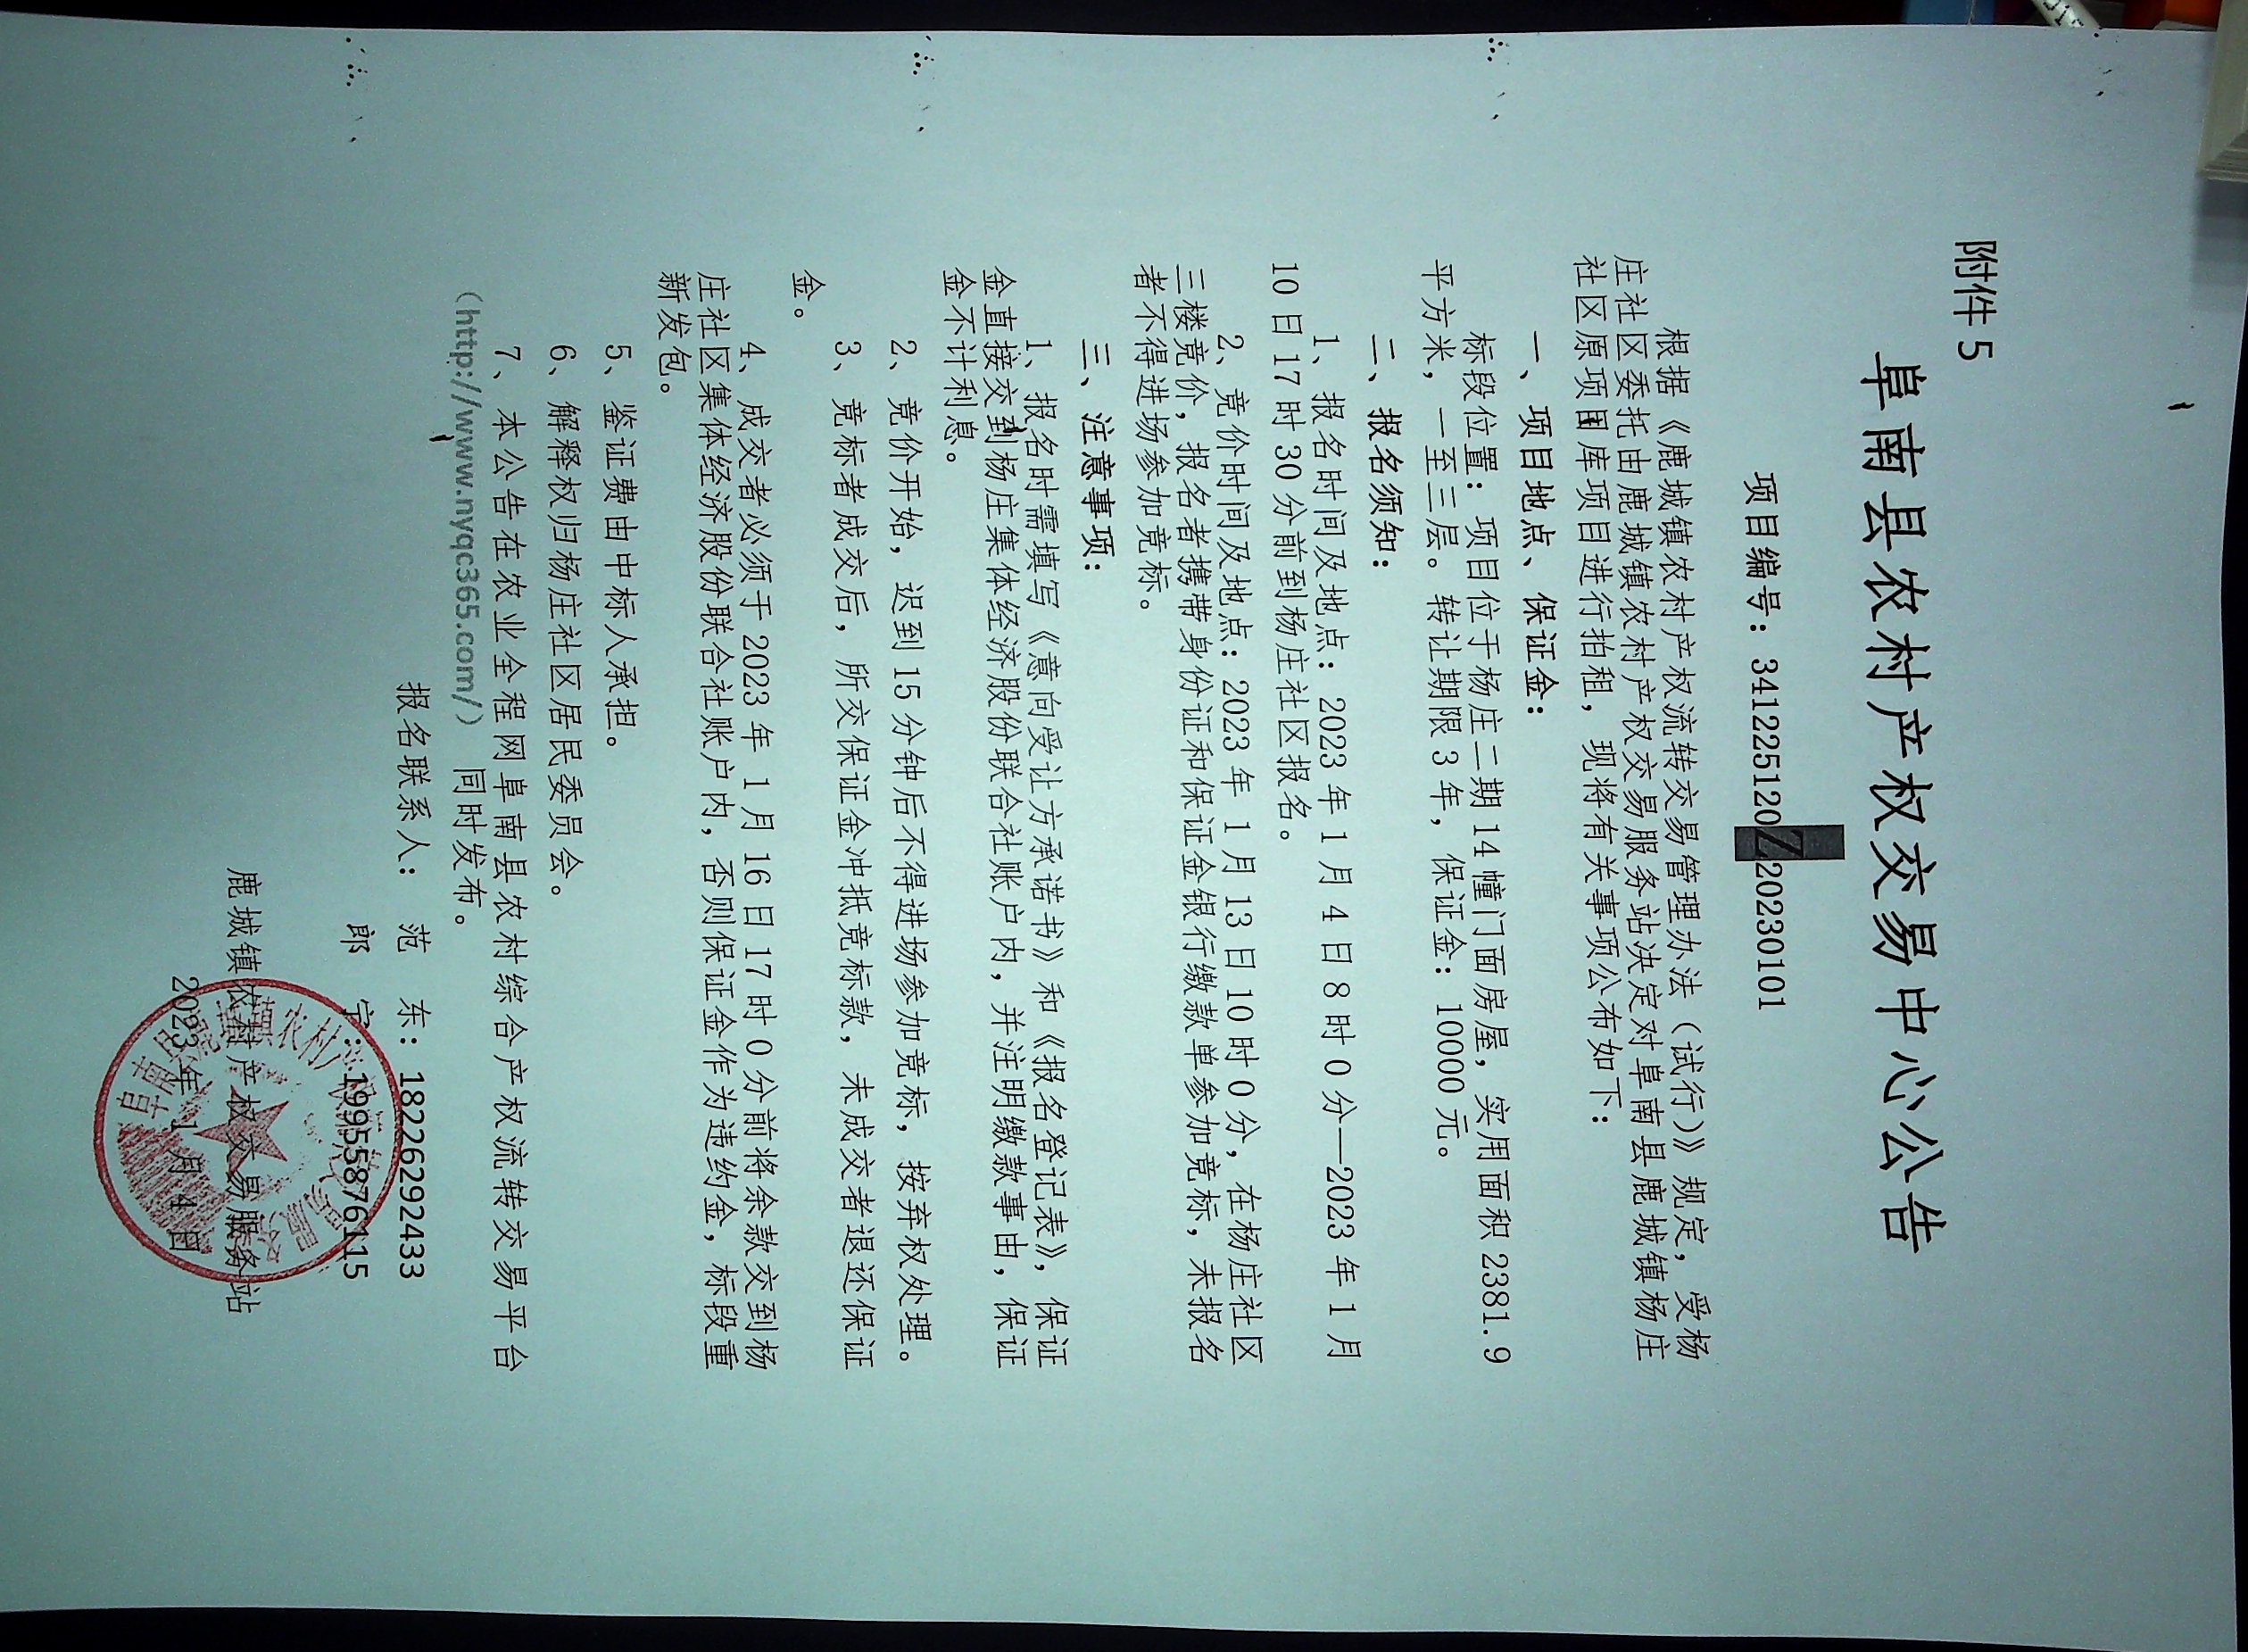 附件 5
阜南县农村产权交易中心公告
项目编号：341225120720230101
根据《鹿城镇农村产权流转交易管理办法（试行）》规定，受杨
庄社区委托由鹿城镇农村产权交易服务站决定对阜南县鹿城镇杨庄
社区原项目库项目进行拍租，现将有关事项公布如下：
一、项目地点、保证金：
标段位置：项目位于杨庄二期 14 幢门面房屋，实用面积 2381.9
平方米，一至三层。转让期限 3 年，保证金：10000 元。
二、报名须知：
1、报名时间及地点：2023 年 1 月 4 日 8 时 0 分—2023 年 1 月
10 日 17 时 30 分前到杨庄社区报名。
2、竞价时间及地点：2023 年 1 月 13 日 10 时 0 分，在杨庄社区
三楼竞价，报名者携带身份证和保证金银行缴款单参加竞标，未报名
者不得进场参加竞标。
三、注意事项：
1、报名时需填写《意向受让方承诺书》和《报名登记表》，保证
金直接交到杨庄集体经济股份联合社账户内，并注明缴款事由，保证
金不计利息。
2、竞价开始，迟到 15 分钟后不得进场参加竞标，按弃权处理。
3、竞标者成交后，所交保证金冲抵竞标款，未成交者退还保证
金。
4、成交者必须于 2023 年 1 月 16 日 17 时 0 分前将余款交到杨
庄社区集体经济股份联合社账户内，否则保证金作为违约金，标段重
新发包。
5、鉴证费由中标人承担。
6、解释权归杨庄社区居民委员会。
7、本公告在农业全程网阜南县农村综合产权流转交易平台
（http://www.nyqc365.com/）同时发布。
报名联系人： 范 东：18226292433
郎 宁：19955876115
鹿城镇农村产权交易服务站
2023 年 1 月 4 日